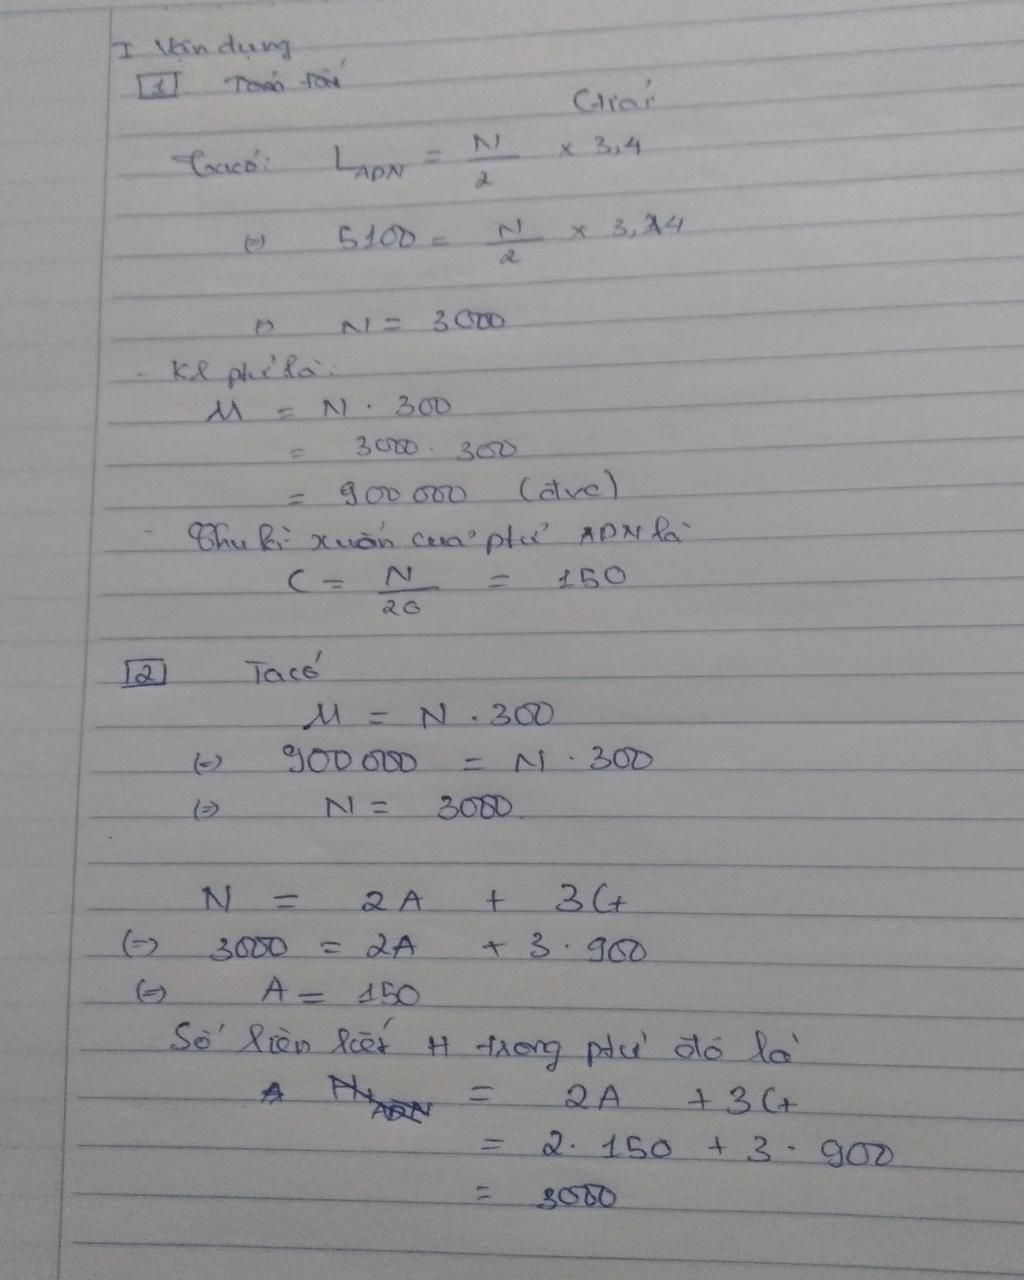 I Vận dụng
[1] Tóm tắt
Giải
Ta có: L ADN = N/2 x 3,4
(=) 5100 = N/2 x 3,4
(=) N = 3000
- Kl ptử là:
M = N . 300
= 3000 . 300
= 900 000 (đvc)
- Chu kì xuắn của ptử ADN là
C = N/20 = 150
[2] Ta có
M = N . 300
(=) 900 000 = N . 300
(=) N = 3000
N = 2A + 3G
(=) 3000 = 2A + 3 . 900
(=) A = 150
Số liên kết H trong ptử đó là
= 2A + 3G
= 2 . 150 + 3 . 900
= 3000